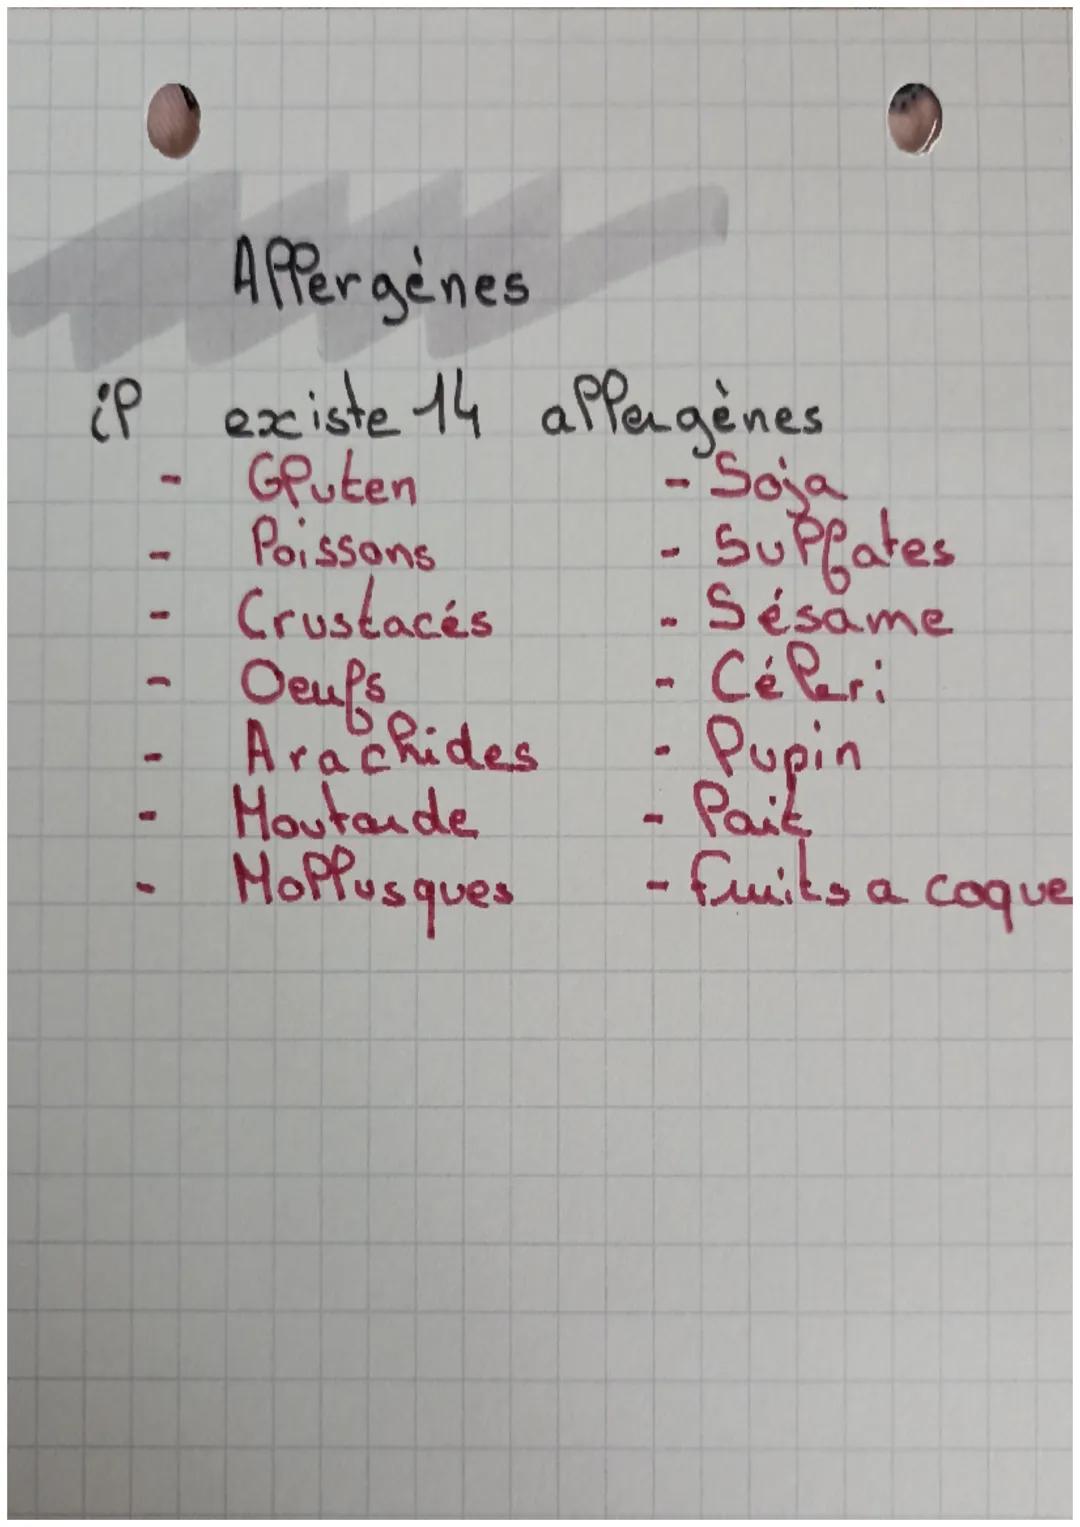 Allergènes
il existe 14 allergènes
- Gluten
- Poissons
- Crustacés
- Oeufs
- Arachides
- Moutarde
- Mollusques
- Soja
- Sulfates
- Sésame
- Céleri
- Lupin
- Lait
- fruits a coque